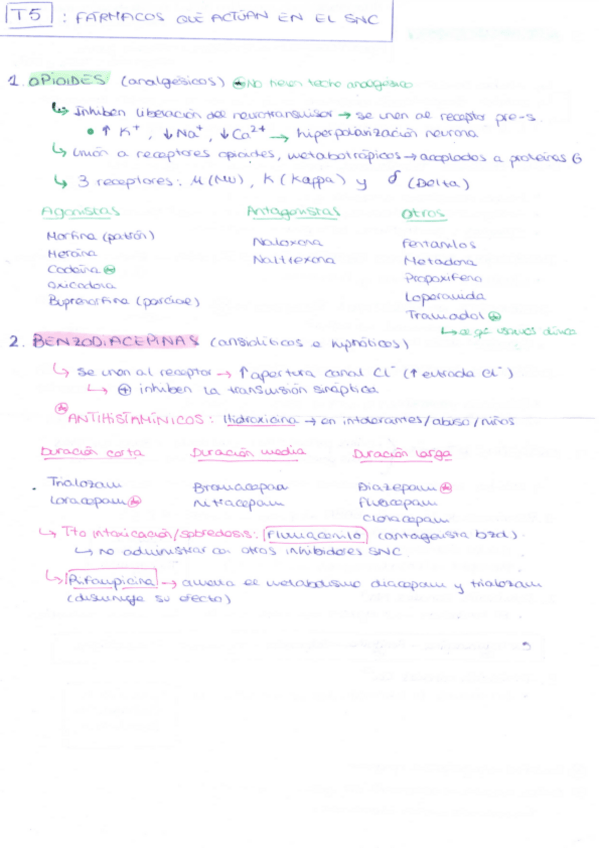 T5 : FÁRMACOS QUE ACTÚAN EN EL SNC
1. OPIOIDES (analgésicos) * No tienen techo analgésico
↳ Inhiben liberación del neurotransmisor → se unen al receptor pre-s.
• ↑ K⁺, ↓ Na⁺, ↓ Ca²⁺ → hiperpolarización neurona
↳ Unión a receptores opioides, metabotrópicos → acoplados a proteínas G
↳ 3 receptores: μ (Mu), K (Kappa) y δ (Delta)
Agonistas Antagonistas Otros
Morfina (patrón)
Heroína
Codeína *
Oxicodona
Buprenorfina (parcial)
Naloxona
Naltrexona
Fentanilos
Metadona
Propoxifeno
Loperamida
Tramadol *
↳ el q́ usamos clínica
2. BENZODIACEPINAS (ansiolíticos e hipnóticos)
↳ Se unen al receptor → ↑ apertura canal Cl⁻ (↑ entrada Cl⁻)
↳ ⊕ inhiben la transmisión sináptica
* ANTIHISTAMÍNICOS: Hidroxicina → en intolerantes/abuso/niños
Duración corta Duración media Duración larga
Triazolam
Loracepam *
Bromacepam
Nitracepam
Diazepam *
Fluracepam
Cloracepam
↳ Tto intoxicación/sobredosis: Flumacenilo (antagonista bzd).
↳ no administrar con otros inhibidores SNC.
↳ Rifampicina → aumenta el metabolismo diacepam y triazolam
(disminuye su efecto)